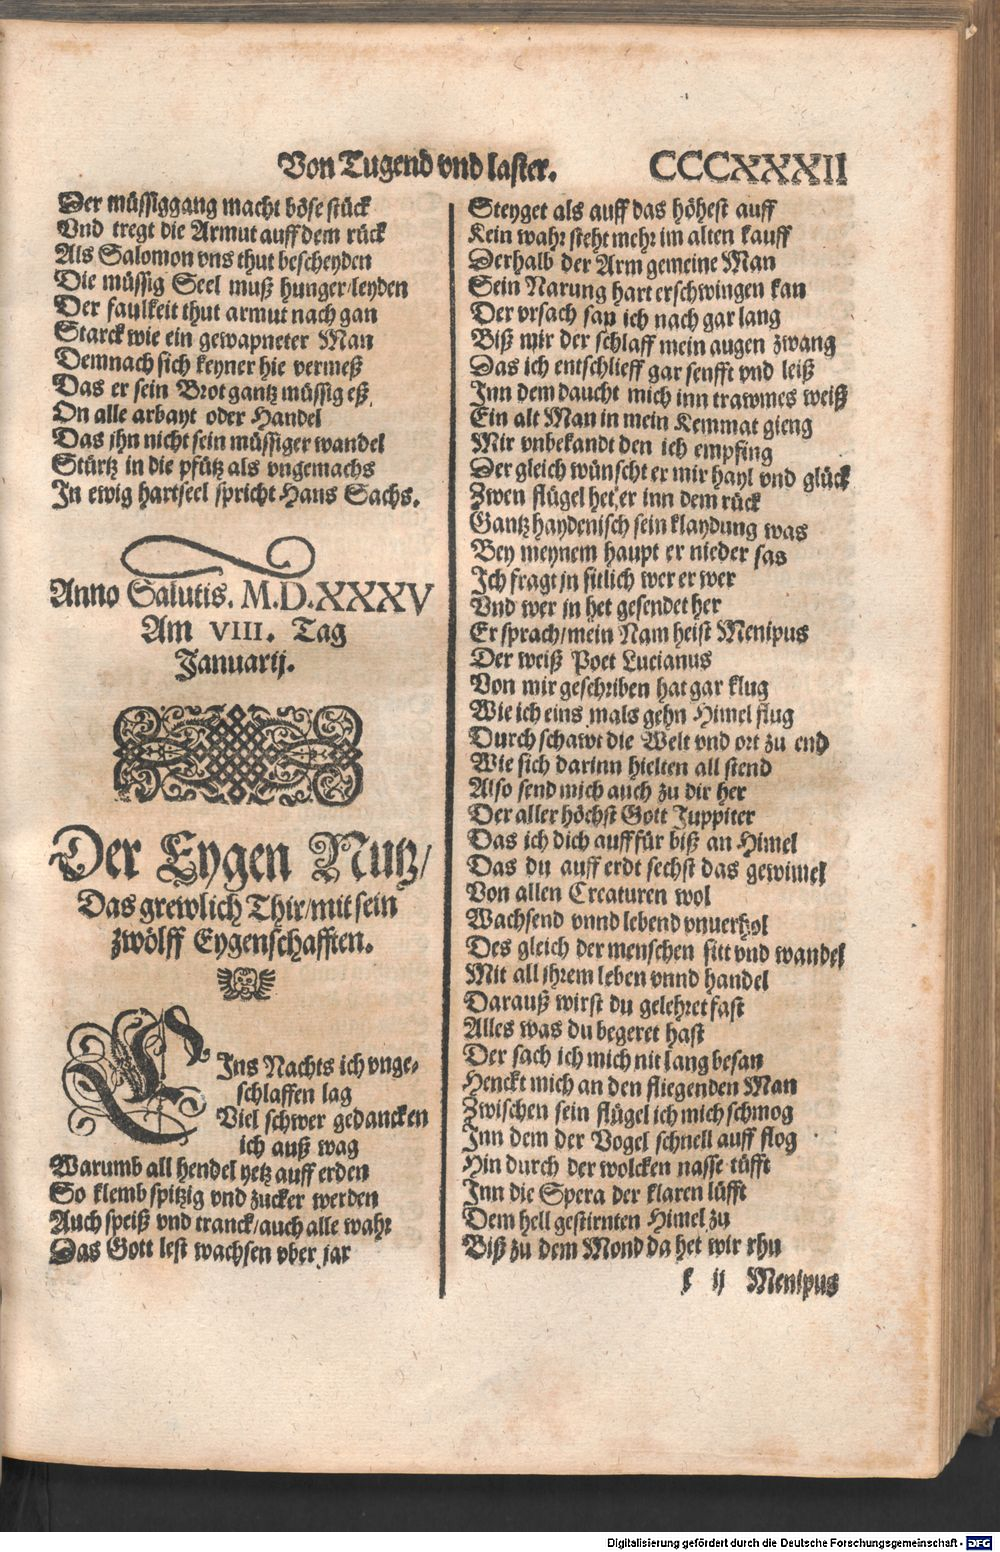 Von Tugend vnd laster. CCCXXXII
Der müssiggang macht böse stück
Vnd tregt die Armut auff dem rück
Als Salomon vns thut bescheyden
Die müssig Seel muß hunger/leyden
Der faulkeit thut armut nach gan
Starck wie ein gewapneter Man
Demnach sich keyner hie vermeß
Das er sein Brot gantz müssig eß
On alle arbayt oder Handel
Das ihn nicht sein müssiger wandel
Stürtz in die pfütz als vngemachs
In ewig hartseel spricht Hans Sachs.
Anno Salutis. M.D.XXXV
Am VIII. Tag
Januarij.
Der Eygen Nutz/
Das grewlich Thir/mit sein
zwölff Eygenschafften.
EIns Nachts ich vnge-
schlaffen lag
Viel schwer gedancken
ich auß wag
Warumb all hendel yetz auff erden
So klemb spitzig vnd zucker werden
Auch speiß vnd tranck/auch alle wahr
Das Gott lest wachsen vber jar
Steyget als auff das höhest auff
Kein wahr steht mehr im alten kauff
Derhalb der Arm gemeine Man
Sein Narung hart erschwingen kan
Der vrsach san ich nach gar lang
Biß mir der schlaff mein augen zwang
Das ich entschlieff gar senfft vnd leiß
Inn dem daucht mich inn trawmes weiß
Ein alt Man in mein Kemmat gieng
Mir vnbekandt den ich empfing
Der gleich wünscht er mir hayl vnd glück
Zwen flügel het er inn dem rück
Gantz haydenisch sein klaydung was
Bey meynem haupt er nieder sas
Ich fragt jn sitlich wer er wer
Vnd wer in het gesendet her
Er sprach/mein Nam heist Menipus
Der weiß Poet Lucianus
Von mir geschriben hat gar klug
Wie ich eins mals gehn Himel flug
Durch schawt die Welt vnd ort zu end
Wie sich darinn hielten all stend
Also send mich auch zu dir her
Der aller höchst Gott Juppiter
Das ich dich auff für biß an Himel
Das du auff erdt sechst das gewimel
Von allen Creaturen wol
Wachsend vnnd lebend vnuerhol
Des gleich der menschen sitt vnd wandel
Mit all ihrem leben vnnd handel
Darauß wirst du gelehret fast
Alles was du begeret hast
Der sach ich mich nit lang besan
Henckt mich an den fliegenden Man
Zwischen sein flügel ich mich schmog
Inn dem der Vogel schnell auff flog
Hin durch der wolcken nasse tüfft
Inn die Spera der klaren lüfft
Dem hell gestirnten Himel zu
Biß zu dem Mond da het wir rhu
k ij Menipus
Digitalisierung gefördert durch die Deutsche Forschungsgemeinschaft - DFG